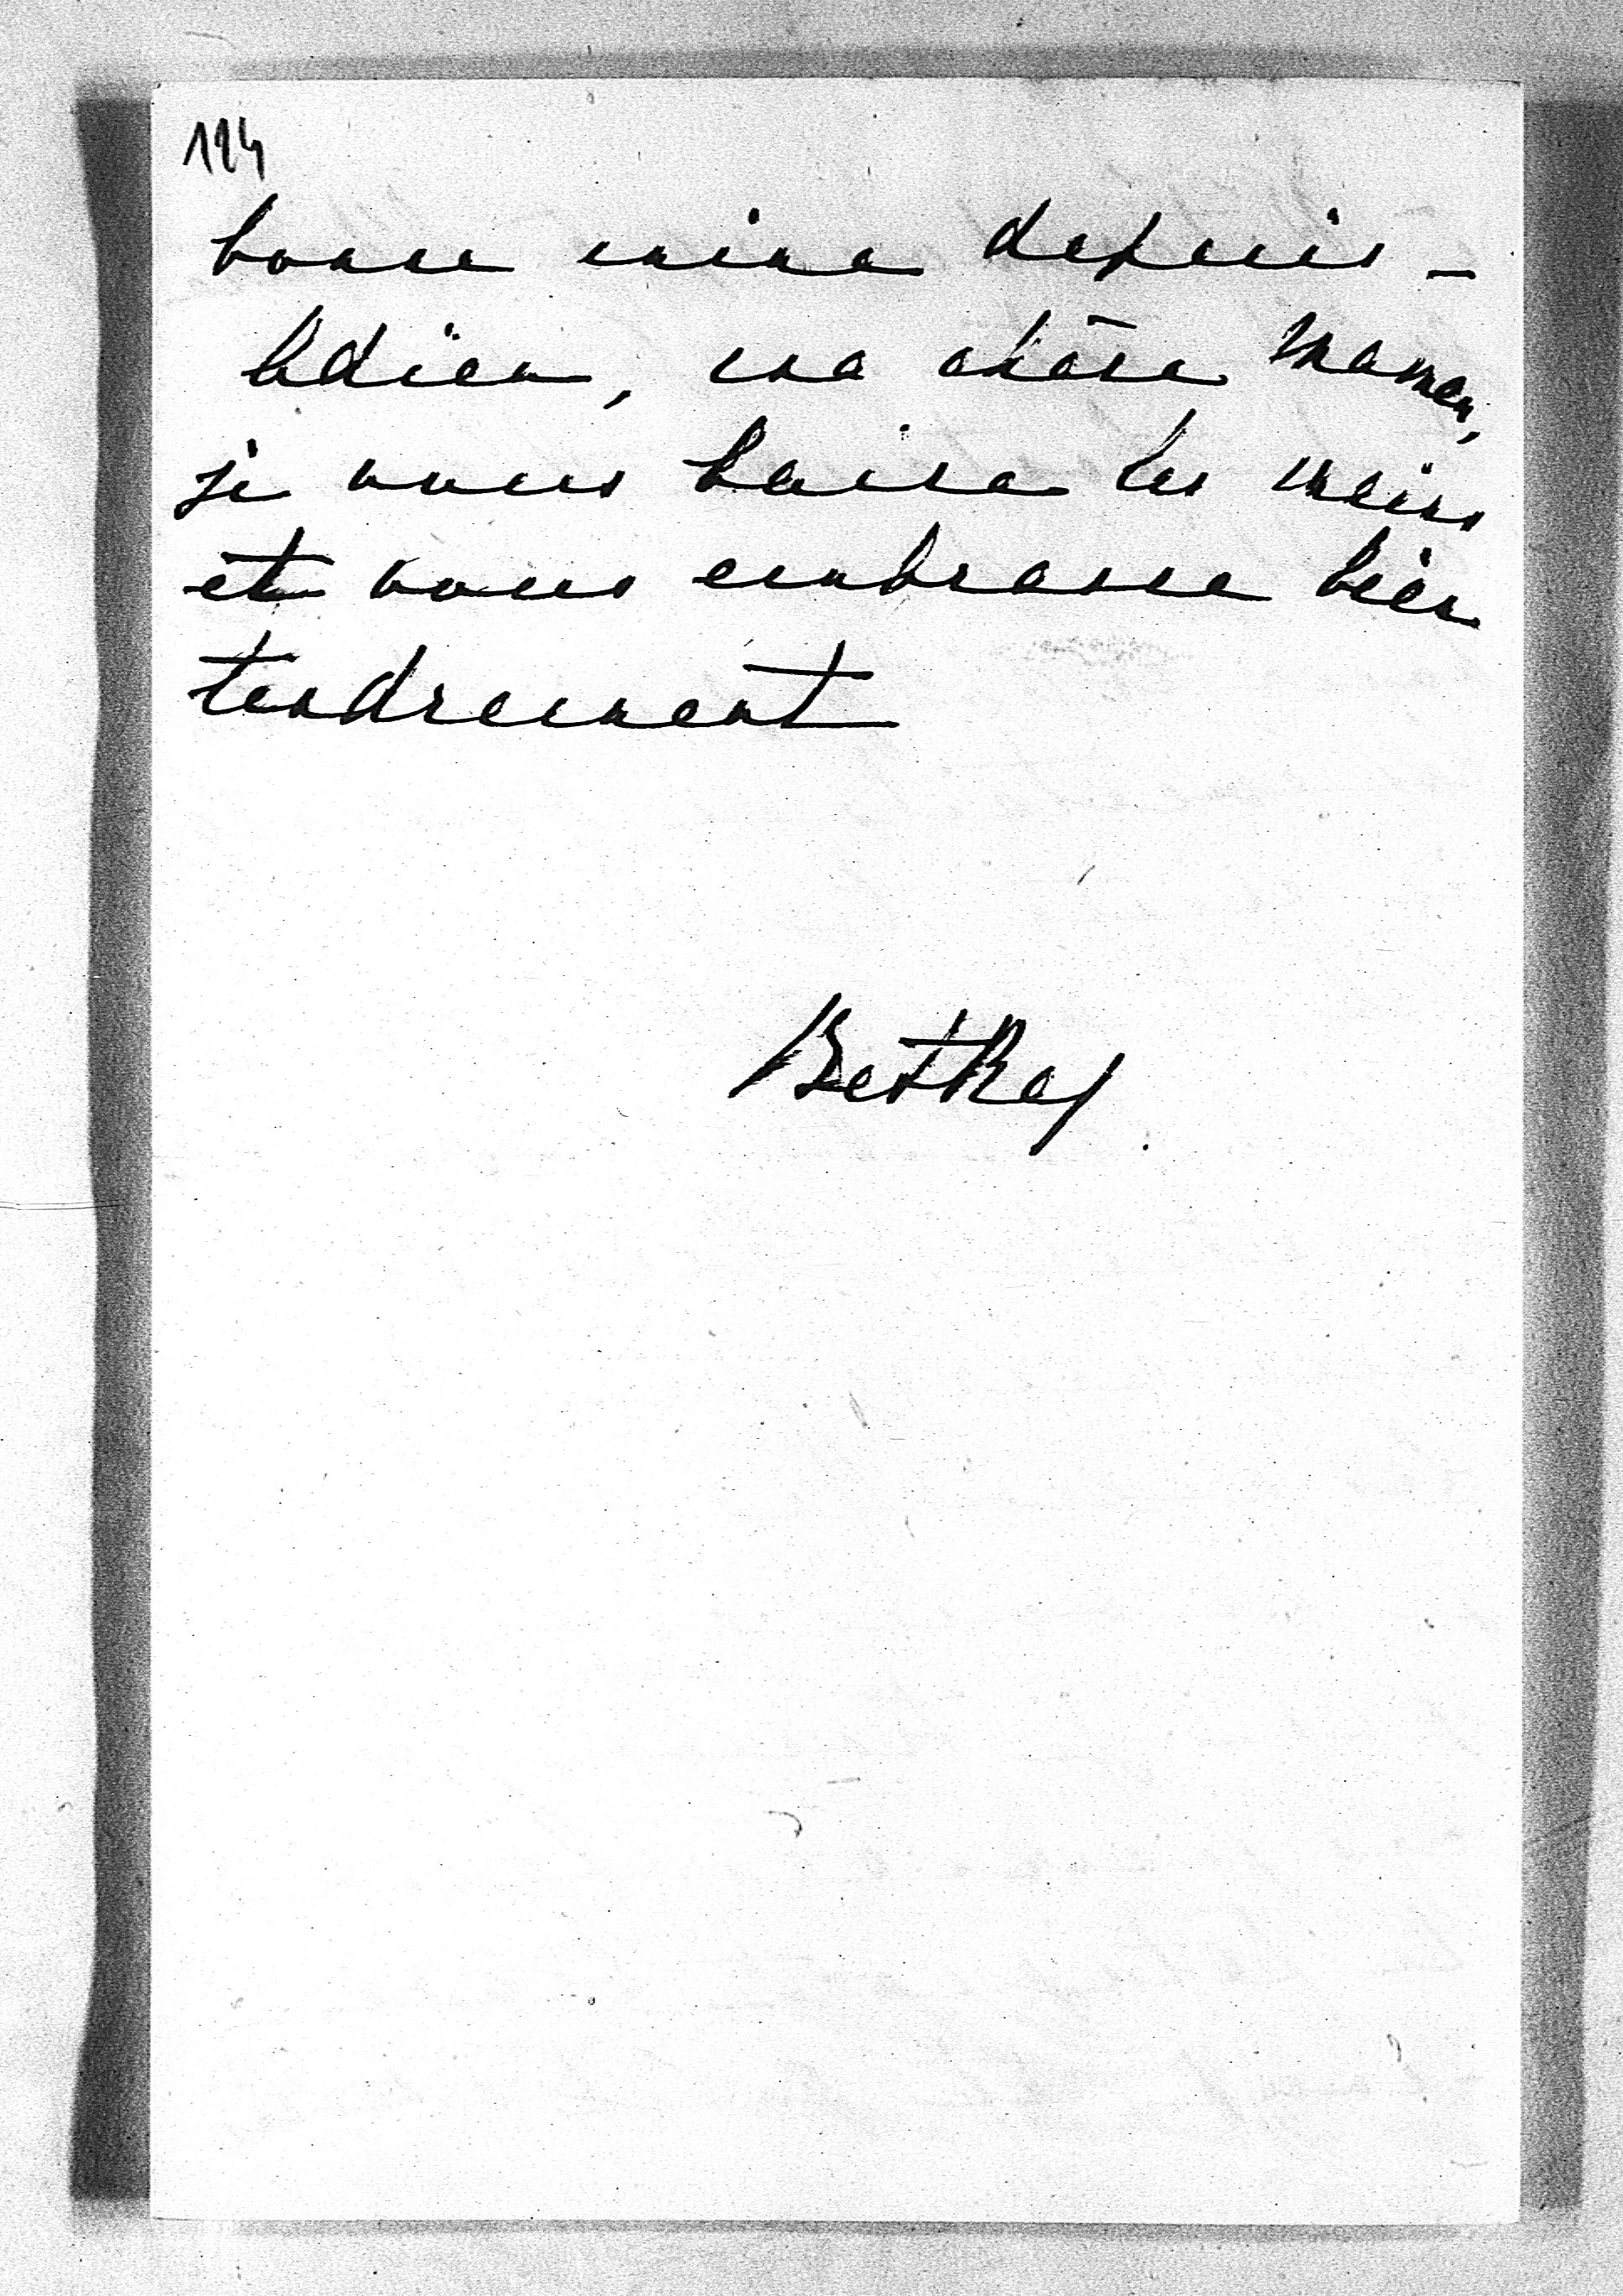 124
bonne mine depuis -
Adieu, ma chère Maman,
je vous baise les mains
et vous embrasse bien
tendrement
Bethsy